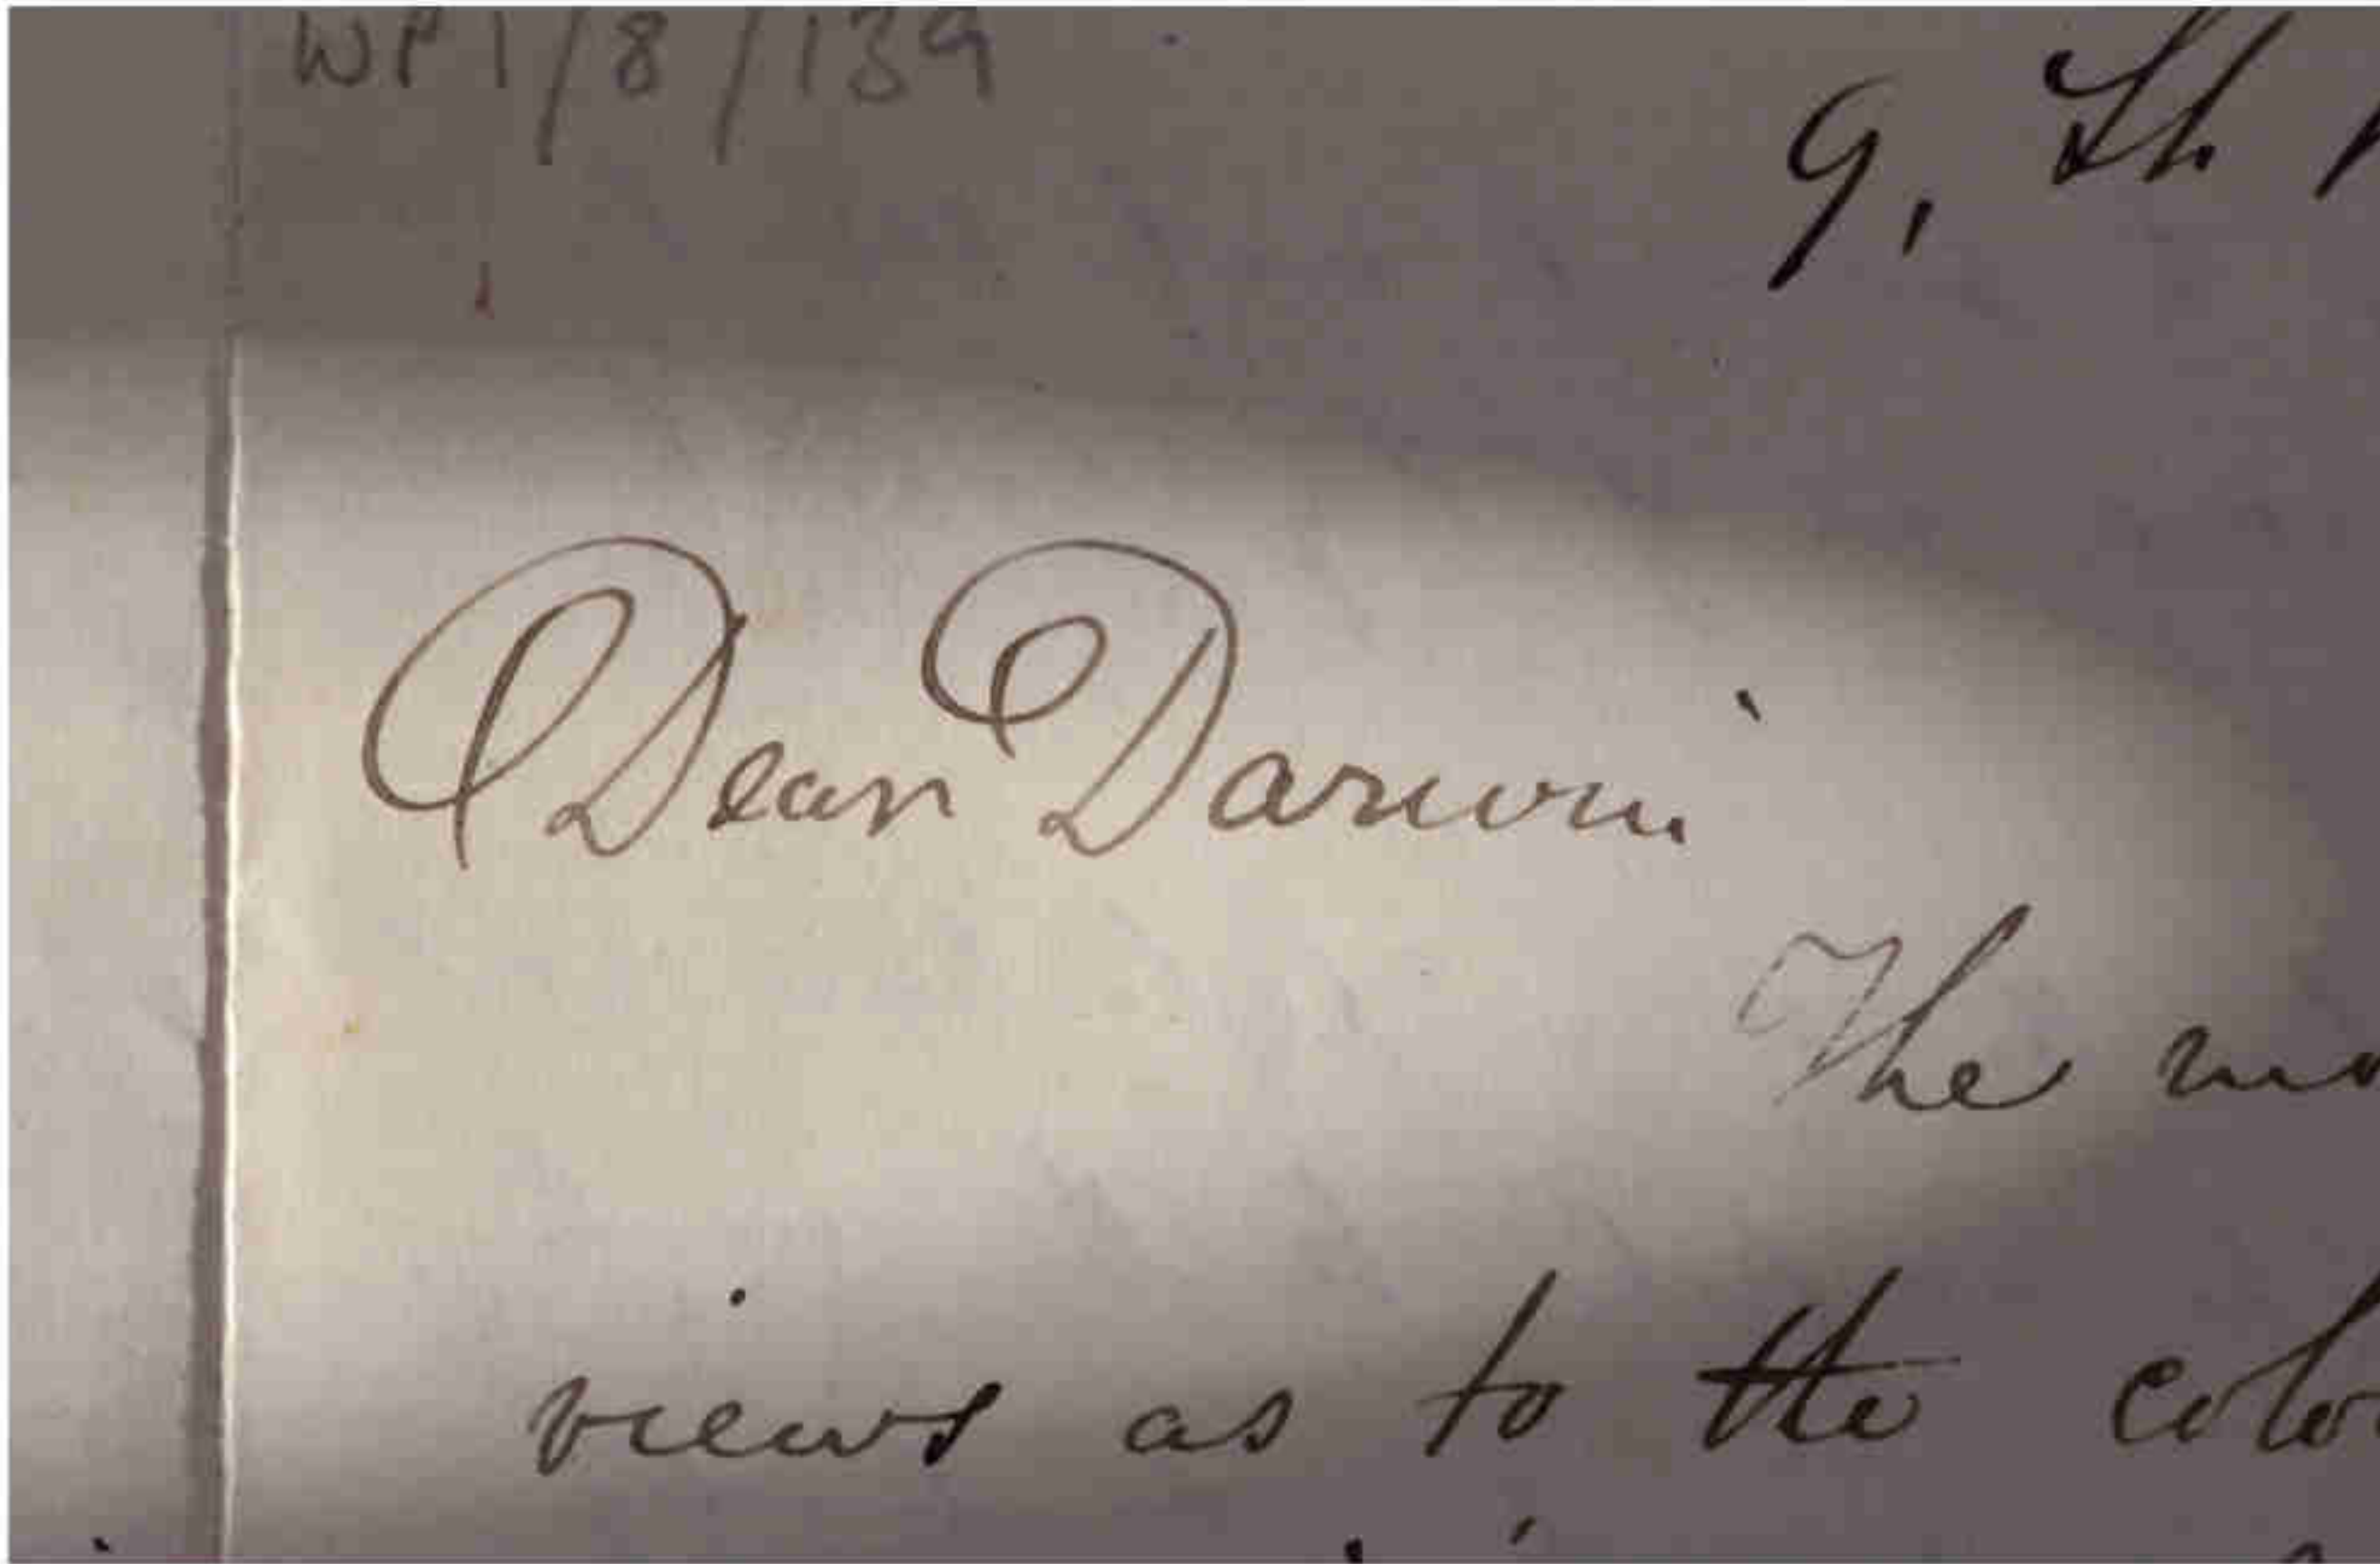 WP1/8/139
9, St.
Dear Darwin
The mo
views as to the colo